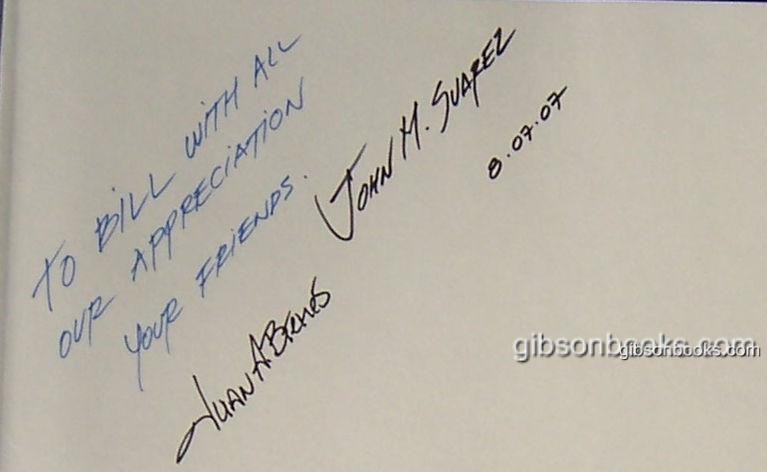 TO BILL WITH ALL
OUR APPRECIATION
YOUR FRIENDS.
JOHN M. SUAREZ
8.07.07
JUAN A
gibsonbooks.com
gibsonbooks.com